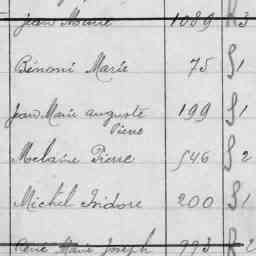 Jean Marie 1089 R 3
Bénoni Marie 75 S 1
Jean Marie Auguste 199 S 1
Pierre
Melaine Pierre 546 S 2
Michel Isidore 200 S 1
René Marie Joseph 993 R 2